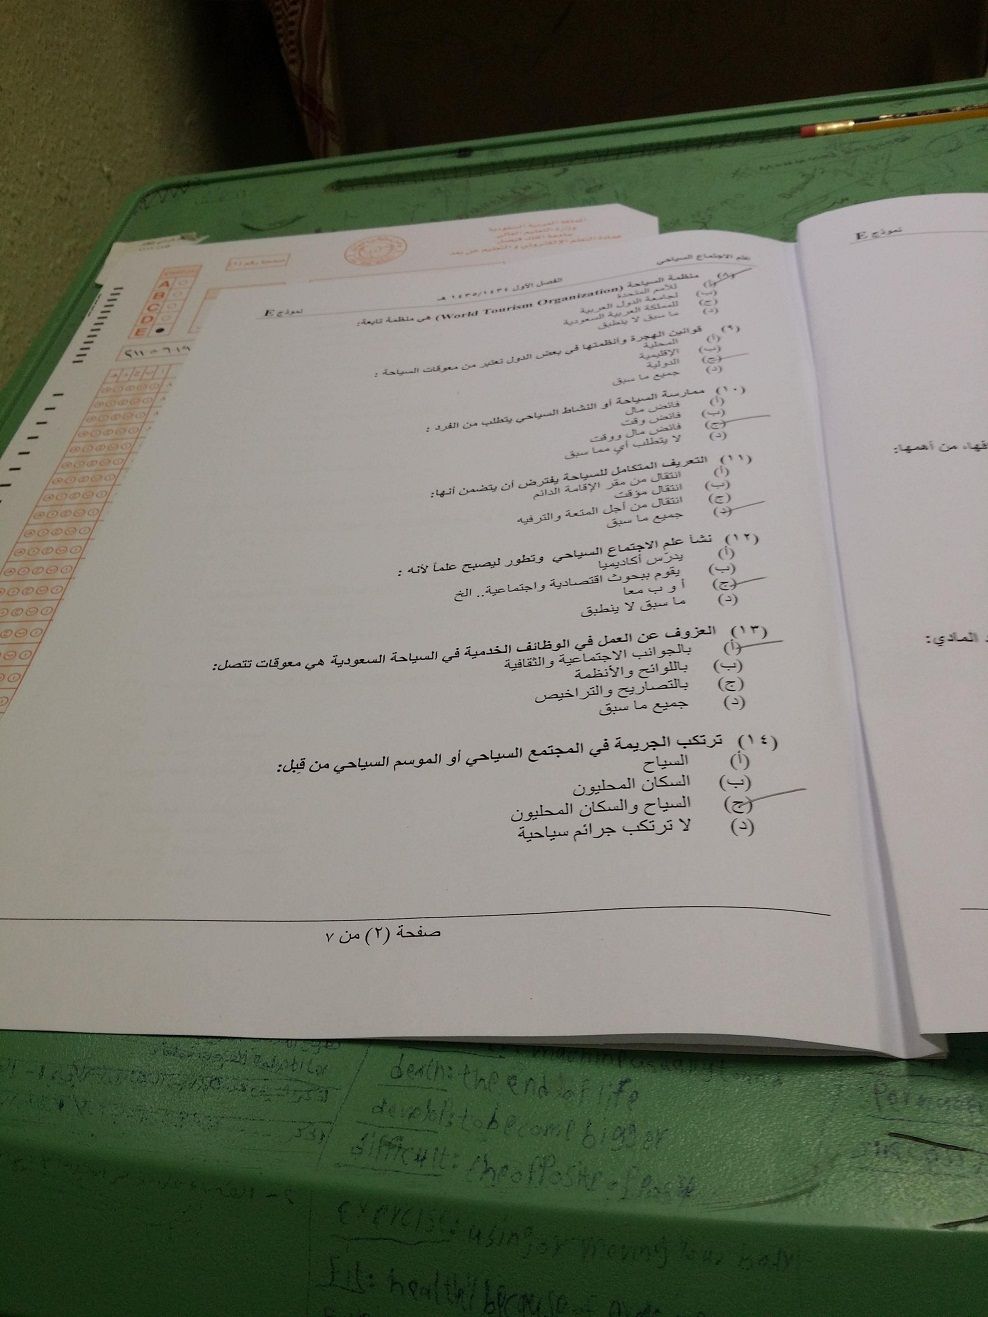 المملكة العربية السعودية
وزارة التعليم العالي
جامعة الملك فيصل
عمادة التعلم الإلكتروني والتعليم عن بعد
صفحة رقم (١)
A
B
C
D
E
علم الاجتماع السياحي
الفصل الأول ١٤٣٥/١٤٣٤ هـ
نموذج E
(٨) منظمة السياحة (World Tourism Organization) هي منظمة تابعة:
(أ) للأمم المتحدة
(ب) لجامعة الدول العربية
(ج) للمملكة العربية السعودية
(د) ما سبق لا ينطبق
(٩) قوانين الهجرة وأنظمتها في بعض الدول تعتبر من معوقات السياحة :
(أ) المحلية
(ب) الإقليمية
(ج) الدولية
(د) جميع ما سبق
(١٠) ممارسة السياحة أو النشاط السياحي يتطلب من الفرد :
(أ) فائض مال
(ب) فائض وقت
(ج) فائض مال ووقت
(د) لا يتطلب أي مما سبق
(١١) التعريف المتكامل للسياحة يفترض أن يتضمن أنها:
(أ) انتقال من مقر الإقامة الدائم
(ب) انتقال مؤقت
(ج) انتقال من أجل المتعة والترفيه
(د) جميع ما سبق
(١٢) نشأ علم الاجتماع السياحي وتطور ليصبح علماً لأنه :
(أ) يدرّس أكاديميا
(ب) يقوم ببحوث اقتصادية واجتماعية.. الخ
(ج) أ و ب معا
(د) ما سبق لا ينطبق
(١٣) العزوف عن العمل في الوظائف الخدمية في السياحة السعودية هي معوقات تتصل:
(أ) بالجوانب الاجتماعية والثقافية
(ب) باللوائح والأنظمة
(ج) بالتصاريح والتراخيص
(د) جميع ما سبق
(١٤) ترتكب الجريمة في المجتمع السياحي أو الموسم السياحي من قِبل:
(أ) السياح
(ب) السكان المحليون
(ج) السياح والسكان المحليون
(د) لا ترتكب جرائم سياحية
صفحة (٢) من ٧
نموذج E
من أهمها:
المادي:
death: the end of life
to become bigger
difficult: the opposite of
exercise: using or moving your body
healthy because